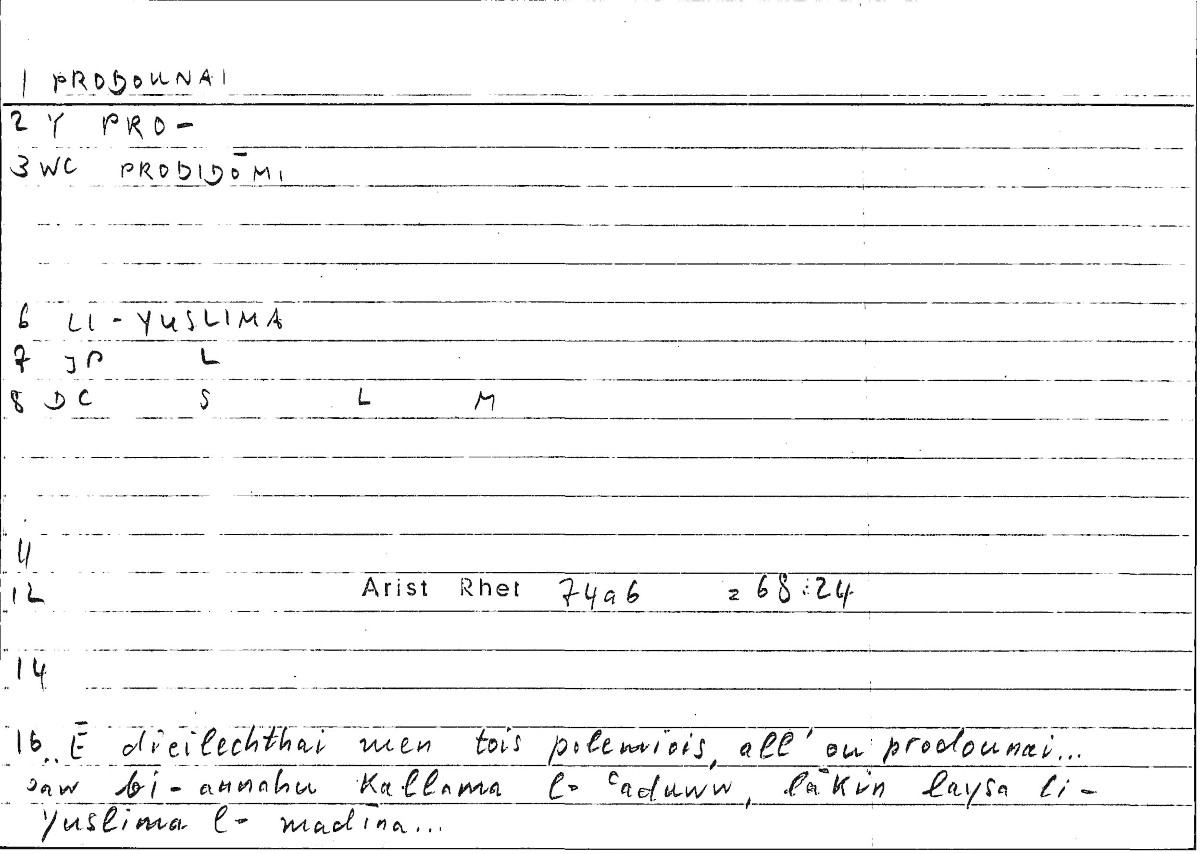 1 PRODOUNAI
2 Y PRO-
3 WC PRODIDŌMI
6 LI-YUSLIMA
7 JP L
8 DC S L M
12 Arist Rhet 74a6 = 68:24
14
16 ..Ē dieilechthai men tois polemiois, all' ou prodounai...
aw bi-annahu kallama l- ʿaduww, lākin laysa li-
yuslima l- madīna...